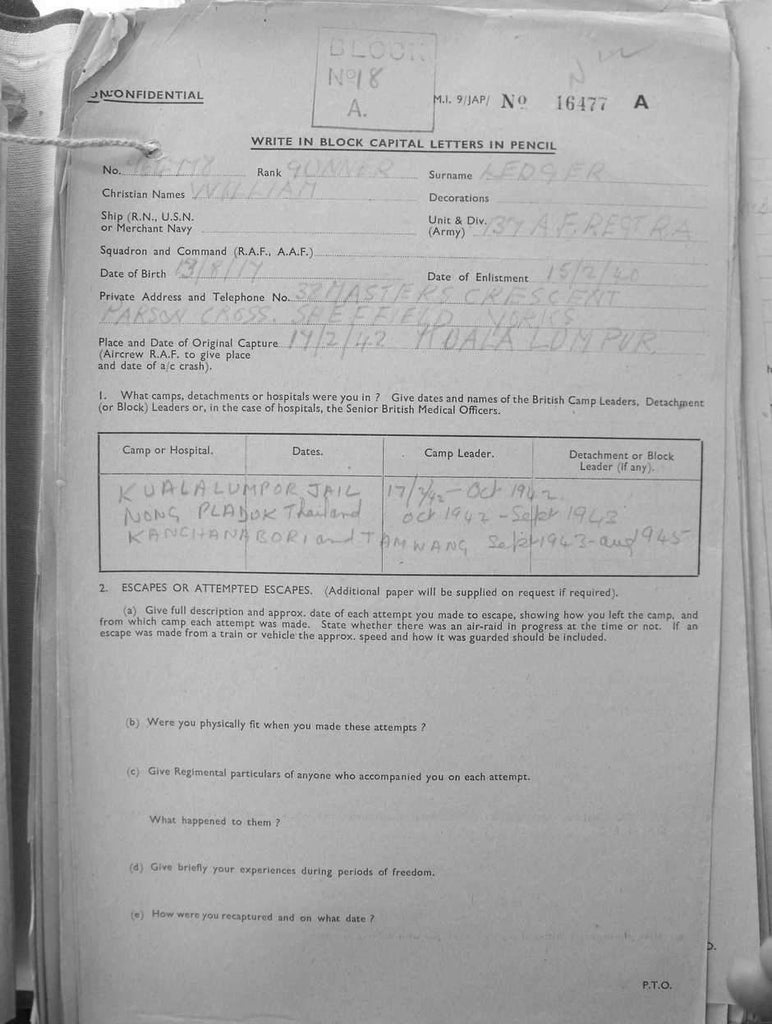 BLOCK
Nº 18
A.
CONFIDENTIAL
M.I. 9/JAP/ Nº 16477 A
WRITE IN BLOCK CAPITAL LETTERS IN PENCIL
No. Rank GUNNER Surname LEDGER
Christian Names WILLIAM Decorations
Ship (R.N., U.S.N. or Merchant Navy
Unit & Div. (Army) 137 A.F. REGT RA
Squadron and Command (R.A.F., A.A.F.)
Date of Birth Date of Enlistment 15/2/40
Private Address and Telephone No. 32 MASTERS CRESCENT
PARSON CROSS. SHEFFIELD YORKS
Place and Date of Original Capture 17/2/42 KUALA LUMPUR
(Aircrew R.A.F. to give place
and date of a/c crash).
1. What camps, detachments or hospitals were you in ? Give dates and names of the British Camp Leaders, Detachment
(or Block) Leaders or, in the case of hospitals, the Senior British Medical Officers.
Camp or Hospital. Dates. Camp Leader. Detachment or Block
Leader (if any).
KUALALUMPOR JAIL 17/2/42 - Oct 1942
NONG PLADUK Thailand oct 1942 - Sept 1943
KANCHANABORI and TAMWANG Sept 1943 - aug 1945
2. ESCAPES OR ATTEMPTED ESCAPES. (Additional paper will be supplied on request if required).
(a) Give full description and approx. date of each attempt you made to escape, showing how you left the camp, and
from which camp each attempt was made. State whether there was an air-raid in progress at the time or not. If an
escape was made from a train or vehicle the approx. speed and how it was guarded should be included.
(b) Were you physically fit when you made these attempts ?
(c) Give Regimental particulars of anyone who accompanied you on each attempt.
What happened to them ?
(d) Give briefly your experiences during periods of freedom.
(e) How were you recaptured and on what date ?
P.T.O.